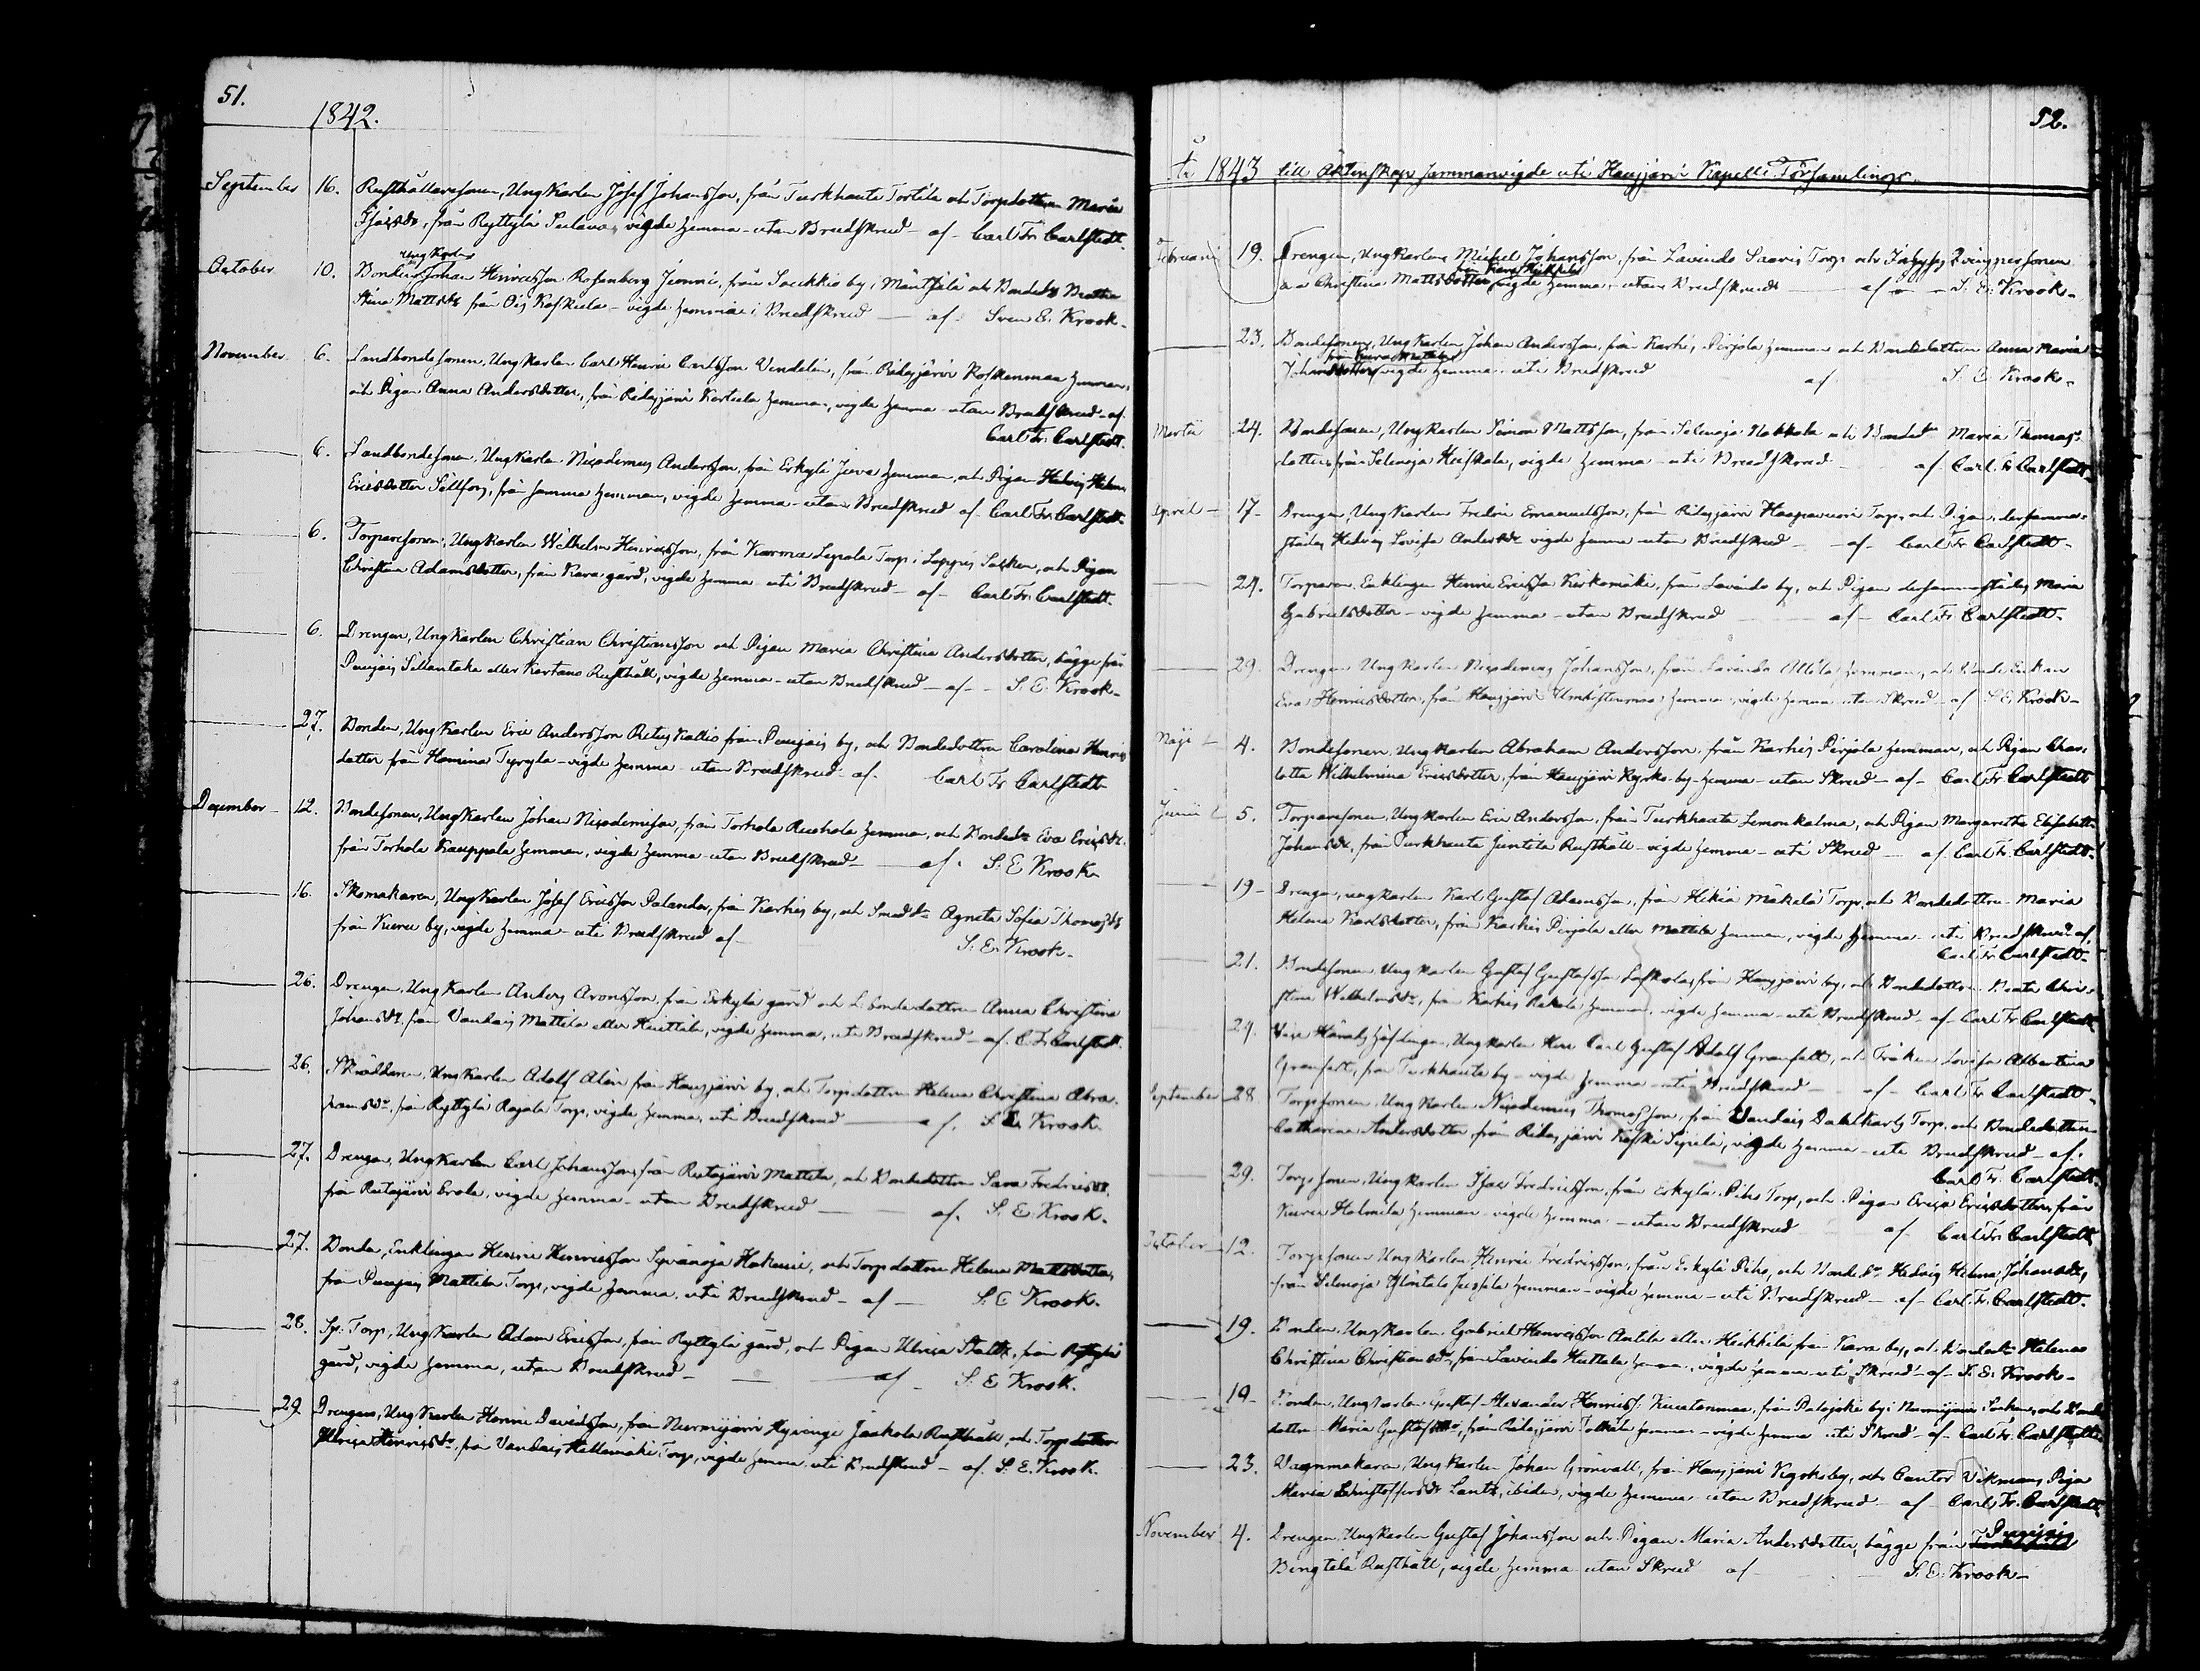 51.
1842.
September 16. Rusthållaresonen, Ungkarlen Josef Johansson, från Turkhauta Tortila och Torpdottren Maria
från Ryttylä vigde hemma utan Brudskrud af Carl Fr. Carlstedt.
Ungkarlen
October 10. Bonden Johan Henricsson Rosenberg från by i Mäntsälä och Bondedr Beatha
Stina Mattsdr från Ois Koskela vigde hemma i Brudskrud af Sven E. Krook.
November 6. Landbondesonen, Ungkarlen Carl Henric Carlsson Vendelin, från Ridasjärvi Koskenmaa hemman,
och Pigan Anna Andersdotter, från Ridasjärvi hemman, vigde hemma utan Brudskrud af
Carl Fr. Carlstedt.
6. Landbondesonen, Ungkarlen Nicodemus Andersson, från Erkylä Juva hemman, och Pigan Hedvig Helena
Ericsdotter från samma hemman, vigde hemma utan Brudskrud af Carl Fr. Carlstedt
6. Torparesonen, Ungkarlen Wilhelm Henricsson, från Karma Lepola Torp i Loppis Socken, och Pigan
Christina Adamsdotter, från Kara gård, vigde hemma uti Brudskrud af Carl Fr. Carlstedt.
6. Drengen, Ungkarlen Christian Christiansson och Pigan Maria Christina Andersdotter, bägge från
Puujais eller Kartano Rusthåll, vigde hemma utan Brudskrud af S. E. Krook
27. Bonden, Ungkarlen Eric Andersson Retus Kallio från Puujais by, och Bondedottren Carolina Henrics
dotter från Hamina Tyrylä vigde hemma utan Brudskrud af Carl Fr Carlstedt
December 12. Bondesonen, Ungkarlen Johan Nicodemisson, från Torhola Ruohola hemman, och Bondedr Eva Ericsdr.
från Torhola Kauppala hemman, vigde hemma utan Brudskrud af S. E Krook
16. Skomakaren, Ungkarlen Josef Ericsson Palander, från Karhis by, och Agneta Sofia Thomasdr
från Kuru by, vigde hemma uti Brudskrud af S. E. Krook.
26. Drengen, Ungkarlen Anders Aronsson, från Erkylä gård och Bondedottren Anna Christina
Johansdr. från Vantais Mattila eller Huittila, vigde hemma, uti Brudskrud af C. Fr Carlstedt.
26. Skräddaren, Ungkarlen Adolf Alén från Hausjärvi by, och Torpdottren Helena Christina Abra-
hamsdr, från Ryttylä Rajala Torp, vigde hemma, uti Brudskrud af. S. E. Krook.
27. Drengen, Ungkarlen Carl Johansson, från Rutajärvi Mattila, och Bondedottren Sara Fredricsdr.
från Rutajärvi Erola, vigde hemma utan Brudskrud af. S. E. Krook.
27. Bonden, Enklingen Henric Henricsson Syvänoja Hakuni, och Torpdottren Helena Mattsdotter,
från Puujais Mattila Torp, vigde hemma uti Brudskrud af S. E Krook.
28. Torp, Ungkarlen Adam Ericsson, från Ryttylä gård, och Pigan Ulrica från Ryttylä
gård, vigde hemma, utan Brudskrud af S. E Krook.
29. Drengen, Ungkarlen Henric Davidsson, från Nurmijärvi Hyvinge Jaakola Rusthåll, och Torpdottren
Ulrica Henricsdr. från Vantais Torp, vigde hemma uti Brudskrud af. S. E. Krook.
52.
År 1843 till Äktenskap sammanvigde uti Hausjärvi Kapells Församling.
Februarii 19. Drengen, Ungkarlen Michel Johansson, från Lavindo Saaris Torp och Qvinnspersonen
från Kara Heikkilä
Christina Mattsdotter vigde hemma utan Brudskrud af S. E. Krook
23. Bondesonen, Ungkarlen Johan Andersson, från Karhis Pirjola hemman och Bondedottren Anna Maria
från Kara Mattila
Johansdotter vigde hemma uti Brudskrud af S. E. Krook
Martii 24. Bondesonen, Ungkarlen Simon Mattsson, från Selenoja Nokkala och Bondedr Maria Thomas-
dotter, från Selenoja vigde hemma uti Brudskrud af Carl Fr Carlstedt
April 17 Drengen, Ungkarlen Fredric Emanuelsson, från Ridasjärvi Torp, och Pigan, dersamma-
städes Hedvig Lovisa Andersdr vigde hemma utan Brudskrud af Carl Fr Carlstedt
24. Torparen, Enklingen Henric Ericsson Kirkomäki, från Lavindo by, och Pigan dersammastädes Maria
Gabrielsdotter vigde hemma utan Brudskrud af Carl Fr Carlstedt.
29. Drengen Ungkarlen Nicodemus Johansson, från Lavindo Ollila hemman, och Bonde Enkan
Eva Henricsdotter, från Hausjärvi hemman, vigde hemma utan Skrud af S. E. Krook
Maji 4. Bondesonen, Ungkarlen Abraham Andersson, från Karhis Pirjola hemman, och Pigan Char-
lotta Wilhelmina Ericsdotter, från Hausjärvi Kyrko by hemma utan Skrud af Carl Fr Carlstedt
Junii 5. Torparesonen, Ungkarlen Eric Andersson, från Turkhauta Lemonkalma, och Pigan Margaretha Elisabeth
Johansdr, från Turkhauta Juntila Rusthåll vigde hemma uti Skrud af Carl Fr. Carlstedt.
19 Drengen, ungkarlen Karl Gustaf Adamsson, från Hikiä Mäkelä Torp, och Bondedottren Maria
Helena Karlsdotter, från Karhis Pirjola eller Mattila hemman, vigde hemma uti Brudskrud af
Carl Fr Carlstedt
21. Bondesonen Ungkarlen Gustaf Gustafsson från Hausjärvi by, och Bondedottren Beata Chri-
stina Wilhelmsdr, från Karhis hemman, vigde hemma uti Brudskrud af Carl Fr Carlstedt
24. Vice Häradshöfdingen, Ungkarlen Herr Carl Gustaf Adolf Granfelt, och Fröken Lovisa Albertina
Granfelt, från Turkhauta by vigde hemma uti Brudskrud af Carl Fr Carlstedt
September 28 Torpsonen, Ungkarlen Nicodemus Thomasson, från Vantais Dahlkarls Torp, och Bondedottren
Catharina Andersdotter från Ridasjärvi Koski vigde hemma uti Brudskrud af.
Carl Fr. Carlstedt.
29. Torpsonen, Ungkarlen Isac Fredricsson, från Erkylä Piho Torp, och Pigan Erica Ericsdotter, från
Kurus hemman vigde hemma utan Brudskrud af Carl Fr. Carlstedt
October 12. Torpsonen Ungkarlen Henric Fredricsson, från Erkylä Piho, och Bondedr Hedvig Helena Johansdr,
från Selenoja hemman vigde hemma uti Brudskrud af Carl Fr. Carlstedt.
19. Bonden, Ungkarlen, Gabriel Henricsson Anttila eller Heikkilä från Kara by, och Bondedr Helena
Christina Christiansdr, från Lavindo Huttala hemman, vigde hemma uti Skrud af S. E. Krook
19 Bonden, Ungkarlen Gustaf Alexander Henricss: från Palojoki by i Nurmijärvi Socken, och Bonde
dottren Maria Gustafsdr, från Ridasjärvi hemman vigde hemma uti Skrud af Carl Fr. Carlstedt
23. Vagnmakaren, Ungkarlen Johan Grönvall, från Hausjärvi Kyrkoby, och Cantor Vikmans Piga
Maria Christoffersdr Lantz, ibidem, vigde hemma utan Brudskrud af Carl Fr. Carlstedt
November 4. Drengen, Ungkarlen Gustaf Johansson och Pigan Maria Andersdotter, bägge från Puujais
Bengtilä Rusthåll, vigde hemma utan Skrud af S. E. Krook